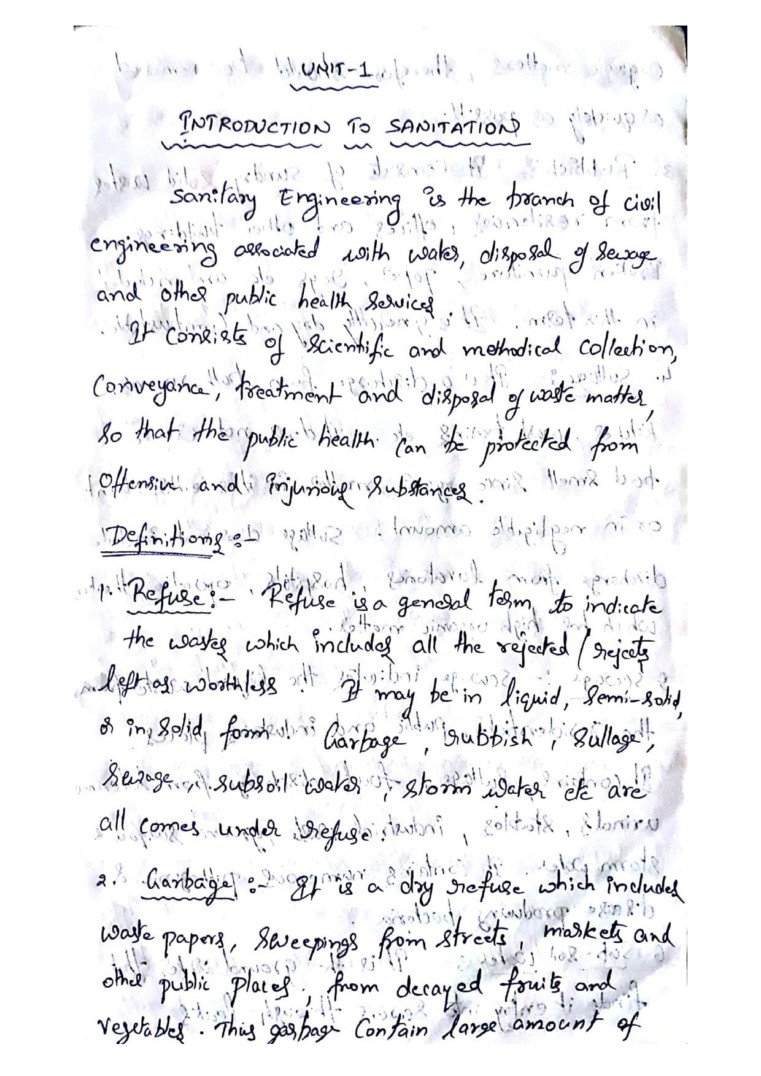 UNIT-1
INTRODUCTION TO SANITATION
Sanitary Engineering is the branch of civil
engineering associated with water, disposal of sewage
and other public health services.
It consists of scientific and methodical collection,
conveyance, treatment and disposal of waste matter,
so that the public health can be protected from
offensive and injurious substances.
Definitions :-
1. Refuse :- Refuse is a general term, to indicate
the wastes which includes all the rejected / rejects
left as worthless. It may be in liquid, semi-solid,
or in solid form. Garbage, rubbish, sullage,
sewage, subsoil water, storm water etc are
all comes under refuse.
2. Garbage :- It is a dry refuse which includes
waste papers, sweepings from streets, markets and
other public places, from decayed fruits and
vegetables. This garbage contain large amount of